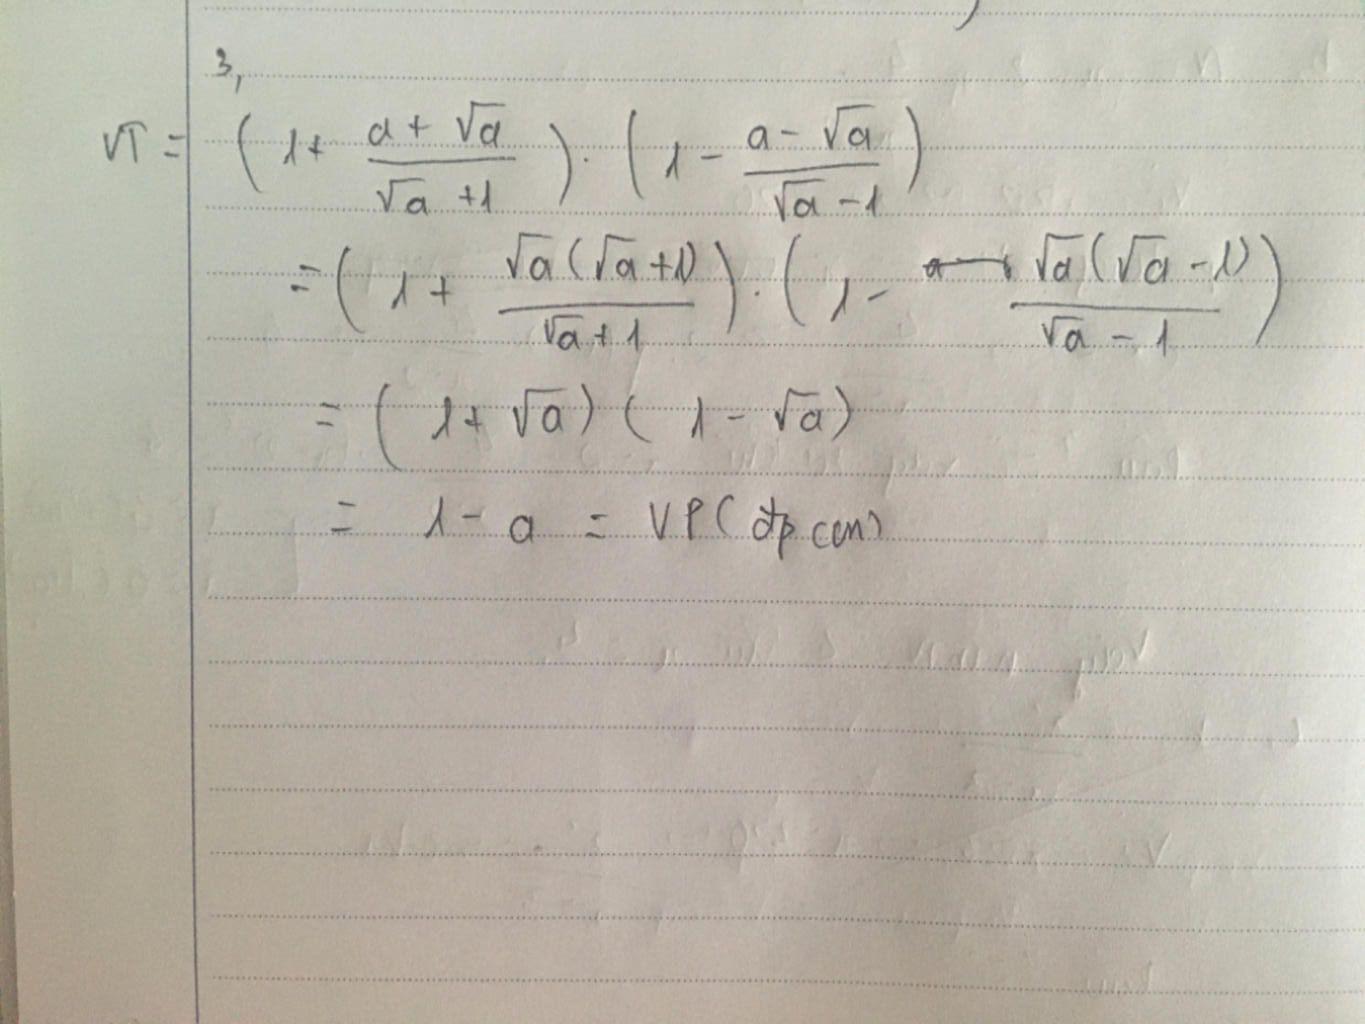 3,
VT = (1 + (a + √a)/(√a + 1)) . (1 - (a - √a)/(√a - 1))
= (1 + √a(√a + 1)/(√a + 1)) . (1 - √a(√a - 1)/(√a - 1))
= (1 + √a) (1 - √a)
= 1 - a = VP (đpcm)